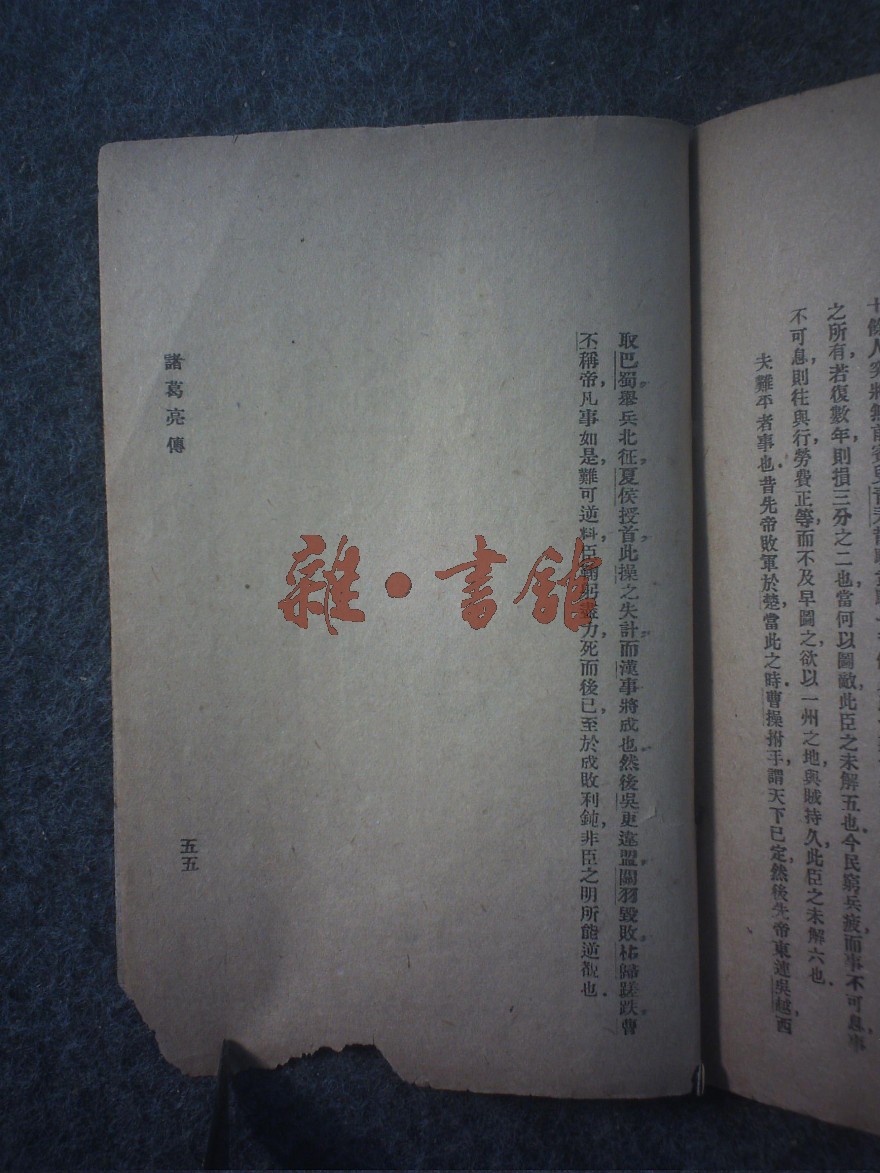 之所有,若復數年,則損三分之二也,當何以圖敵,此臣之未解五也.今民窮兵疲,而事不可息,事
不可息,則住與行,勞費正等,而不及早圖之,欲以一州之地,與賊持久,此臣之未解六也.
夫難平者事也.昔先帝敗軍於楚,當此之時,曹操拊手,謂天下已定,然後先帝東連吳越,西
取巴蜀,舉兵北征,夏侯授首,此操之失計,而漢事將成也.然後吳更違盟,關羽毀敗,秭歸蹉跌,曹
丕稱帝,凡事如是,難可逆料,臣鞠躬盡力,死而後已,至於成敗利鈍,非臣之明所能逆覩也.
諸葛亮傳
五五
雜·書館